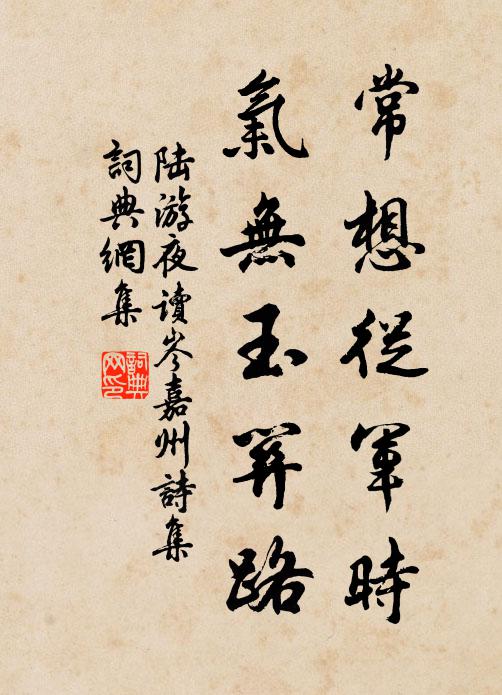 常想從軍時
氣無玉關路
陆游夜讀岑嘉州詩集
詞典網集
詞典網印